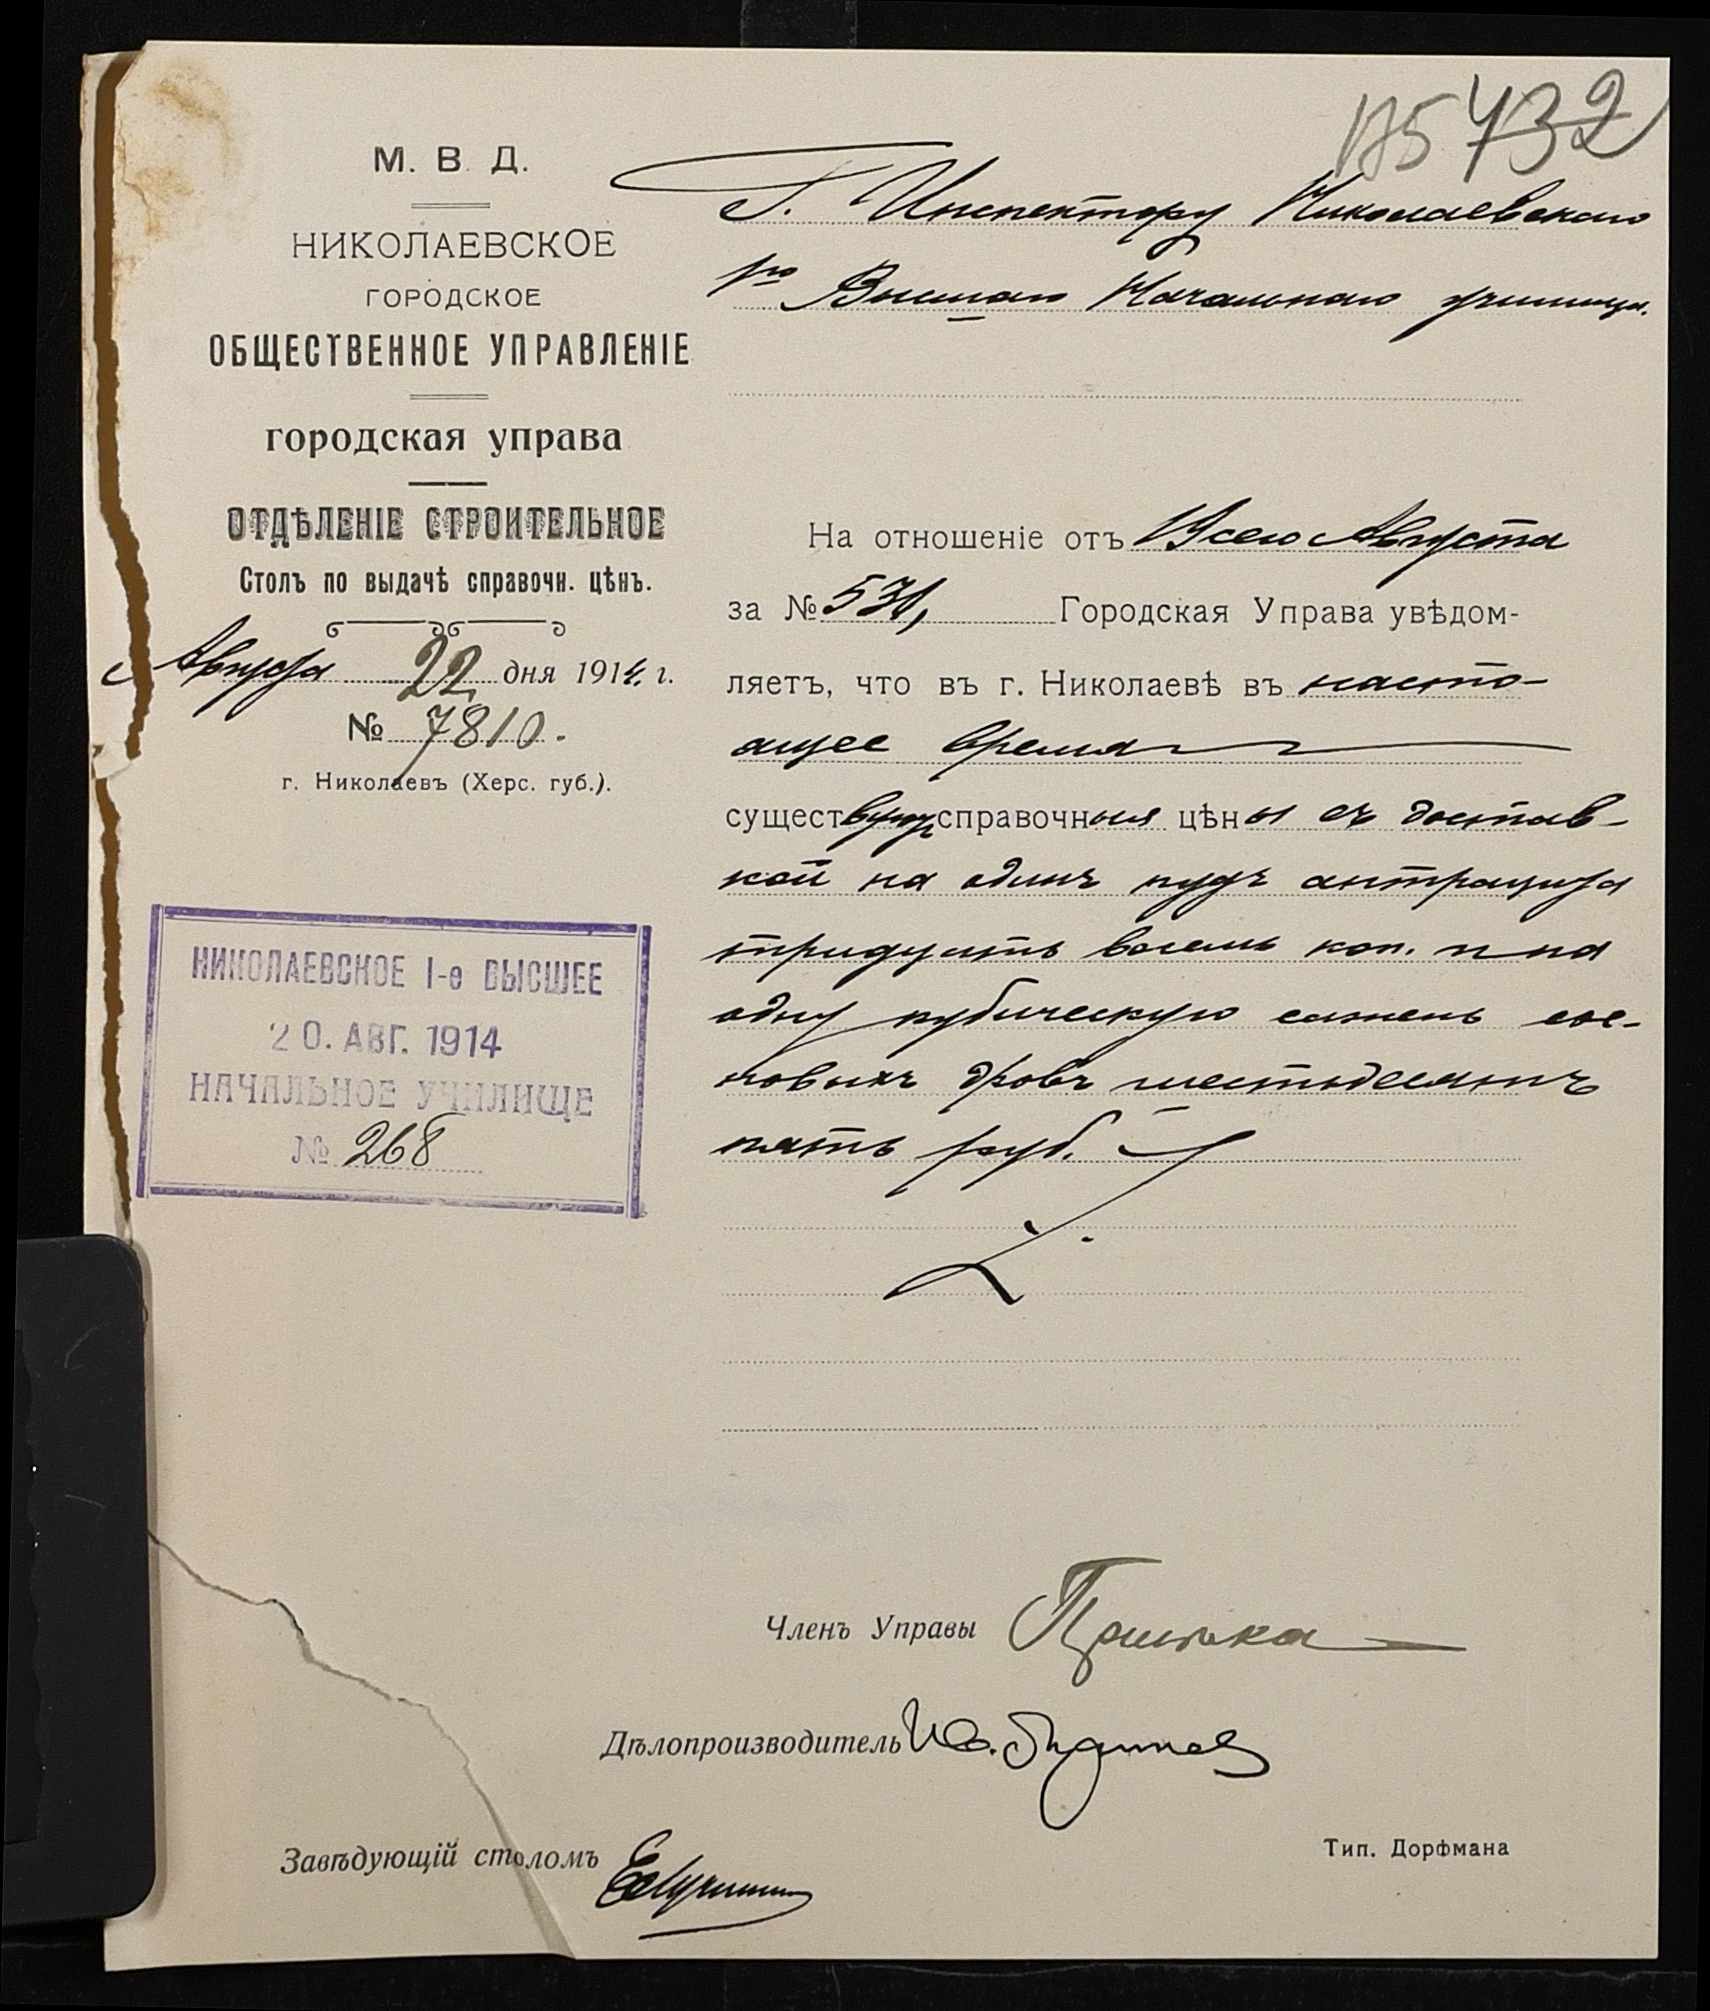 175 732
М. В. Д.
НИКОЛАЕВСКОЕ
ГОРОДСКОЕ
ОБЩЕСТВЕННОЕ УПРАВЛЕНІЕ
городская управа
ОТДѢЛЕНІЕ СТРОИТЕЛЬНОЕ
Столъ по выдачѣ справочн. цѣнъ.
Августа 22 дня 1914 г.
№ 7810.
г. Николаевъ (Херс. губ.).
НИКОЛАЕВСКОЕ 1-е ВЫСШЕЕ
20. АВГ. 1914
НАЧАЛЬНОЕ УЧИЛИЩЕ
№ 268
Г. Инспектору Николаевскаго
1го Высшаго Начальнаго училища.
На отношеніе отъ сего Августа
за № 531, Городская Управа увѣдом-
ляетъ, что въ г. Николаевѣ въ насто-
ящее время
существуютъ справочныя цѣны съ достав-
кой на одинъ пудъ антрацита
тридцать восемь коп. и на
одну кубическую сажень сос-
новыхъ дровъ шестьдесятъ
пять руб.
Членъ Управы
Дѣлопроизводитель
Завѣдующій столомъ
Тип. Дорфмана